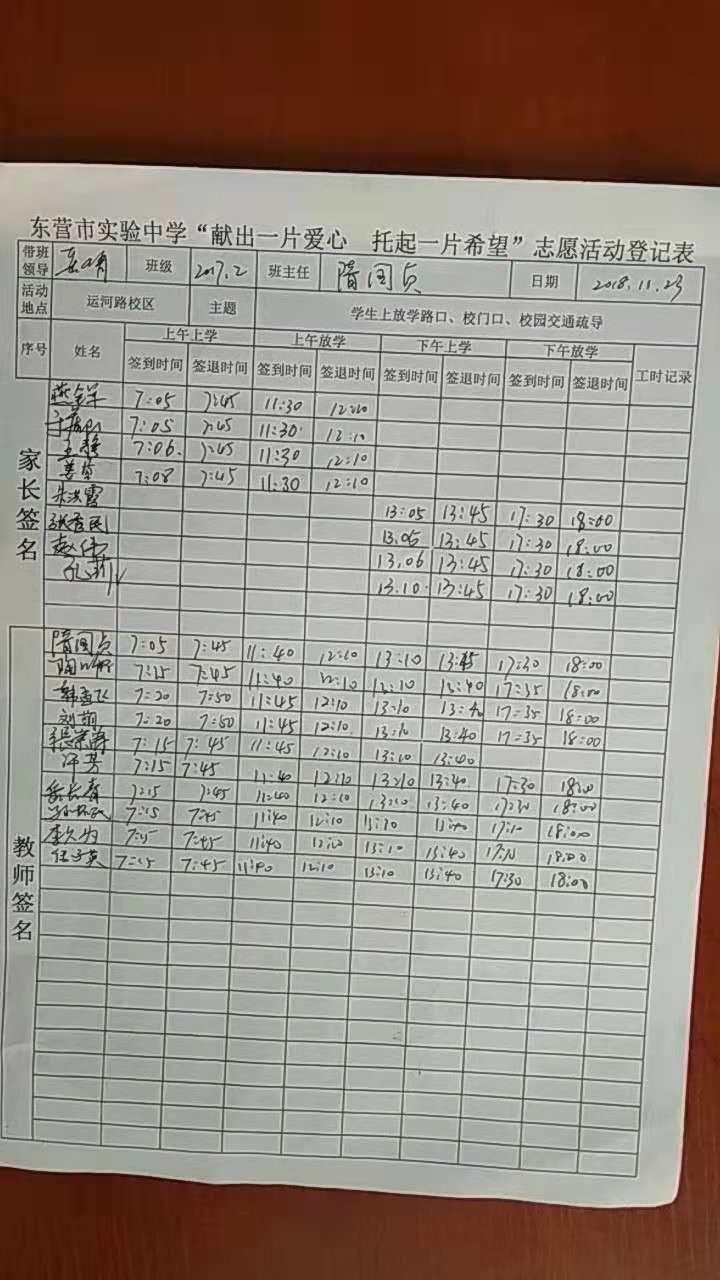 东营市实验中学“献出一片爱心 托起一片希望”志愿活动登记表
带班领导 班级 2017.2 班主任 隋国贞 日期 2018.11.23
活动地点 运河路校区 主题 学生上放学路口、校门口、校园交通疏导
序号 姓名 上午上学 上午放学 下午上学 下午放学 工时记录
签到时间 签退时间 签到时间 签退时间 签到时间 签退时间 签到时间 签退时间
家长签名
7:05 7:45 11:30 12:10
7:05 7:45 11:30 12:10
王静 7:06 7:45 11:30 12:10
7:08 7:45 11:30 12:10
朱洪霞 13:05 13:45 17:30 18:00
13.05 13:45 17:30 18:00
赵伟 13.06 13:45 17:30 18:00
孔莉 13.10 13:45 17:30 18:00
教师签名
隋国贞 7:05 7:45 11:40 12:10 13:10 13:45 17:30 18:00
7:15 7:45 11:40 12:10 13:40 17:35 18:00
韩孟飞 7:20 7:50 11:45 12:10 13:10 13:40 17:35 18:00
刘萌 7:20 7:50 11:45 12:10 13:10 13:40 17:35 18:00
7:15 7:45 11:45 12:10 13:10 13:40
许芳 7:15 7:45 11:40 12:10 13:10 13:40 17:30 18:00
7:15 7:45 11:40 12:10 13:10 13:40 17:30 18:00
7:15 7:45 11:40 12:10 13:10 13:40 18:00
7:15 7:45 11:40 12:10 13:10 13:40 18:00
任子英 7:15 7:45 11:40 12:10 13:10 13:40 17:30 18:00